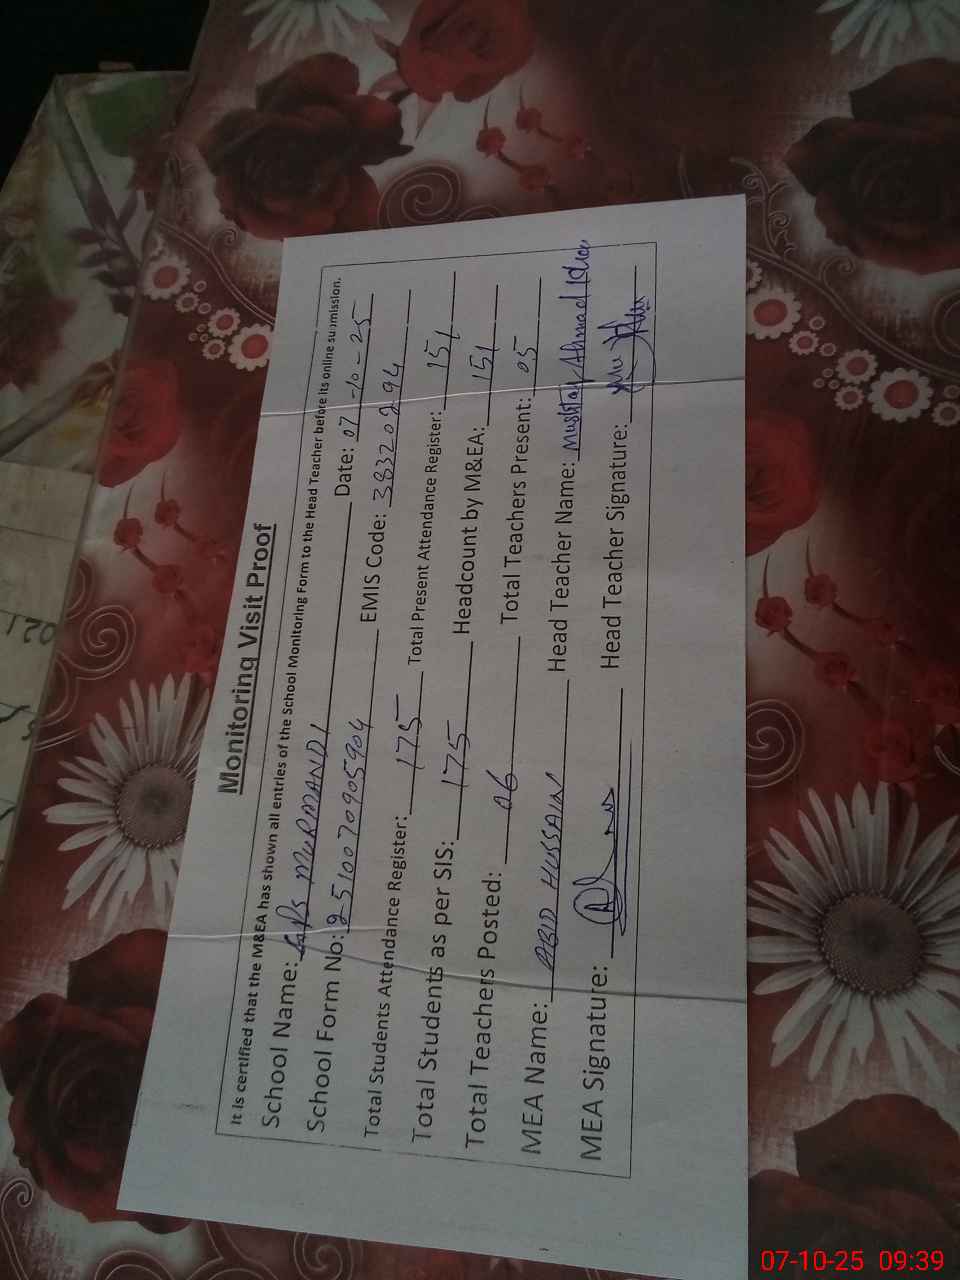 Monitoring Visit Proof
It is certified that the M&EA has shown all entries of the School Monitoring Form to the Head Teacher before its online submission.
School Name: GPS MURMANDI Date: 07-10-25
School Form No: 2510070905904 EMIS Code: 38320294
Total Students Attendance Register: 175 Total Present Attendance Register: 151
Total Students as per SIS: 175 Headcount by M&EA: 151
Total Teachers Posted: 06 Total Teachers Present: 05
MEA Name: ABID HUSSAIN Head Teacher Name: Mushtaq Ahmad Khan
MEA Signature: Head Teacher Signature:
07-10-25 09:39